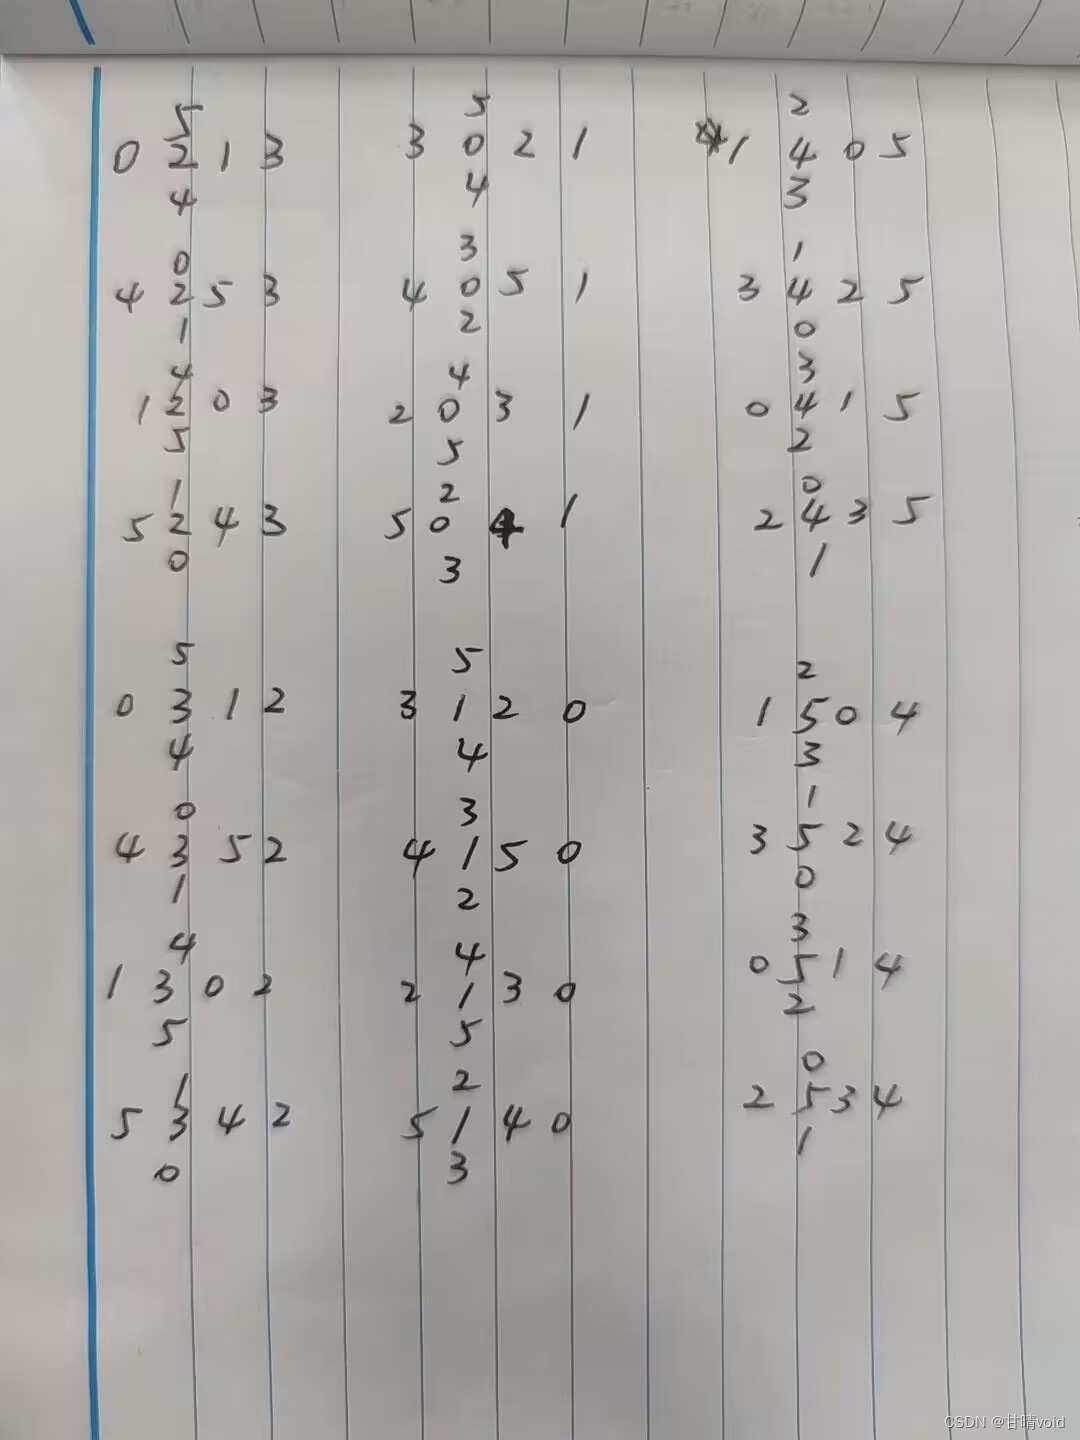 5 5 2
0 2 1 3 3 0 2 1 1 4 0 5
4 4 3
0 3 1
4 2 5 3 4 0 5 1 3 4 2 5
1 2 0
4 4 3
1 2 0 3 2 0 3 1 0 4 1 5
5 5 2
1 2 0
5 2 4 3 5 0 4 1 2 4 3 5
0 3 1
5 5 2
0 3 1 2 3 1 2 0 1 5 0 4
4 4 3
0 3 1
4 3 5 2 4 1 5 0 3 5 2 4
1 2 0
4 4 3
1 3 0 2 2 1 3 0 0 5 1 4
5 5 2
1 2 0
5 3 4 2 5 1 4 0 2 5 3 4
0 3 1
CSDN @甘晴void